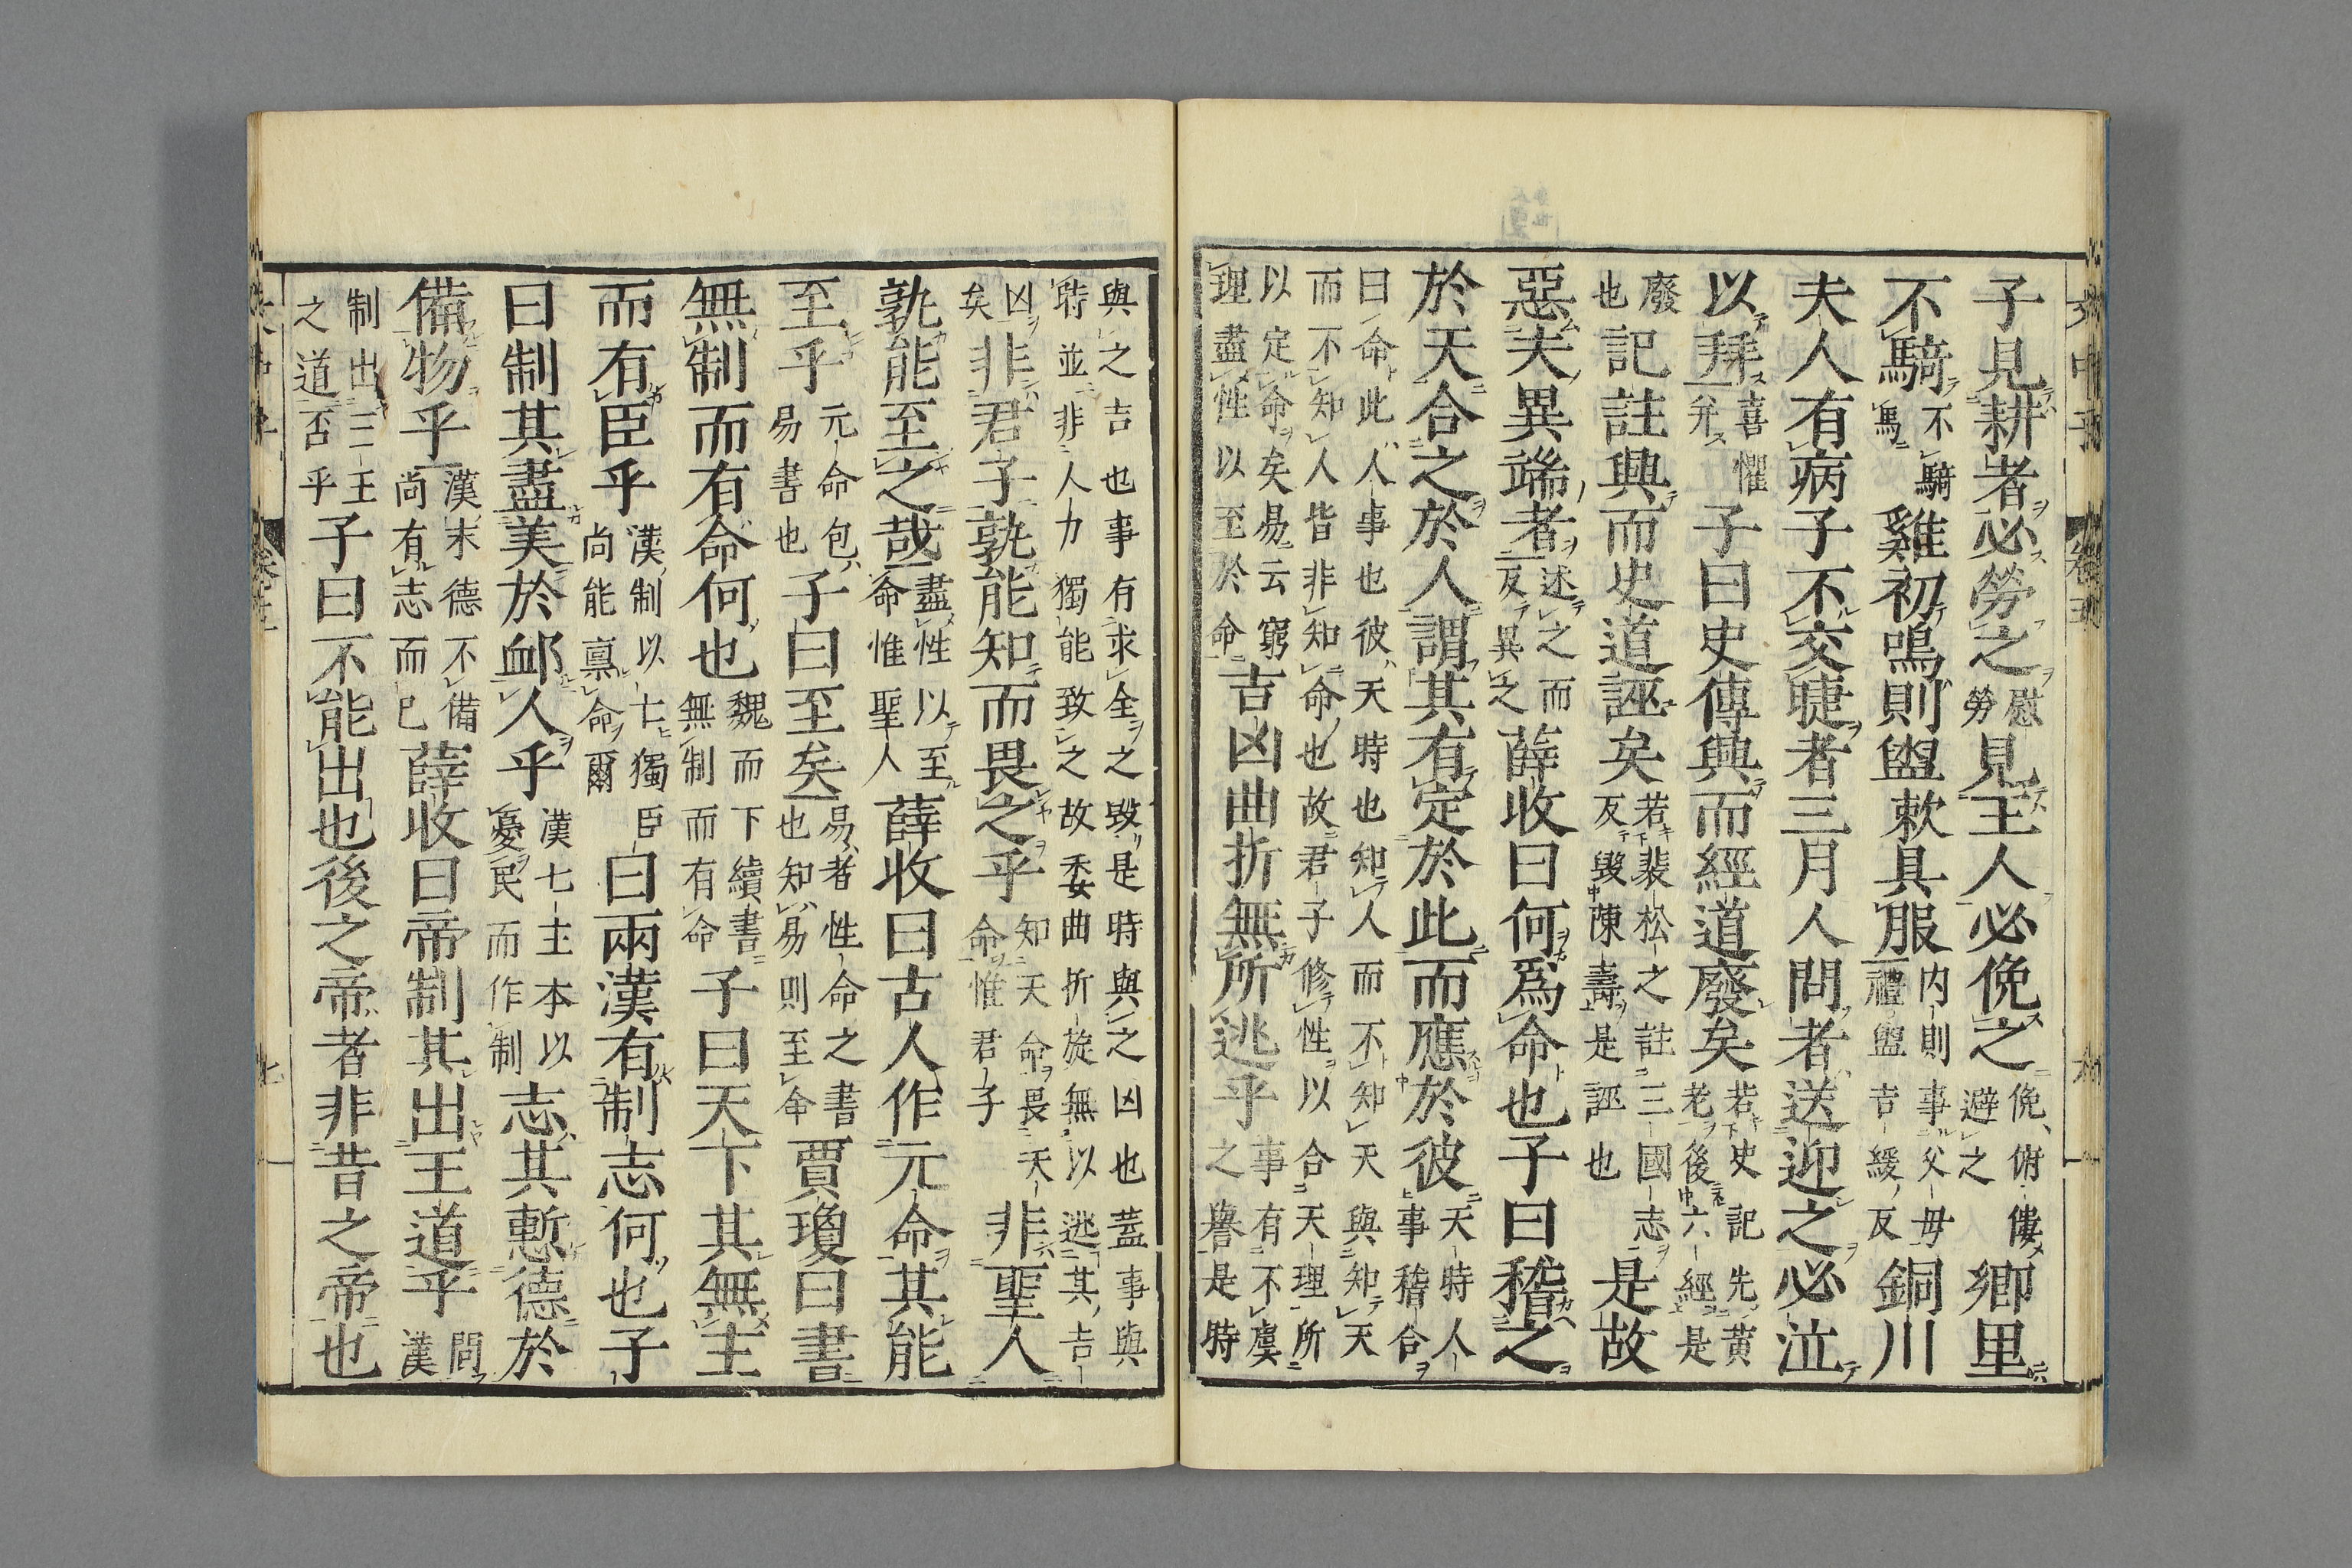 子見耕者必勞之慰勞見王人必俛之俛俯僂避之鄉里
不騎不騎馬雞初鳴則盥漱具服内則事父母禮盥音緩反銅川
夫人有病子不交睫者三月人問者送迎之必泣
以拜喜懼弁子曰史傳興而經道廢矣若史記先黄老後六經是
廢也記註興而史道誣矣若裴松之註三國志反毀陳壽是誣也是故
惡夫異端者述之而反異之薛收曰何爲命也子曰稽之
於天合之於人謂其有定於此而應於彼天時人事稽合
曰命此人事也彼天時也知人而不知天與知天而不知人皆非知命也故君子修性以合天理所
以定命矣易云窮理盡性以至於命吉凶曲折無所逃乎事有不虞之譽是時
與之吉也事有求全之毀是時與之凶也蓋事與時並非人力獨能致之故委曲折旋無以逃其吉
凶矣非君子孰能知而畏之乎知天命畏天命惟君子非聖人
孰能至之哉盡性以至命惟聖人薛收曰古人作元命其能
至乎元命包易書也子曰至矣易者性命之書也知易則至命賈瓊曰書
無制而有命何也魏而下續書無制而有命子曰天下其無主
而有臣乎漢制以七獨臣尚能禀命爾曰兩漢有制志何也子
曰制其盡美於卹人乎漢七主本以憂民而作制志其慙德於
備物乎漢末德不備尚有志而已薛收曰帝制其出王道乎問漢
制出三王之道否乎子曰不能出也後之帝者非昔之帝也
卷五